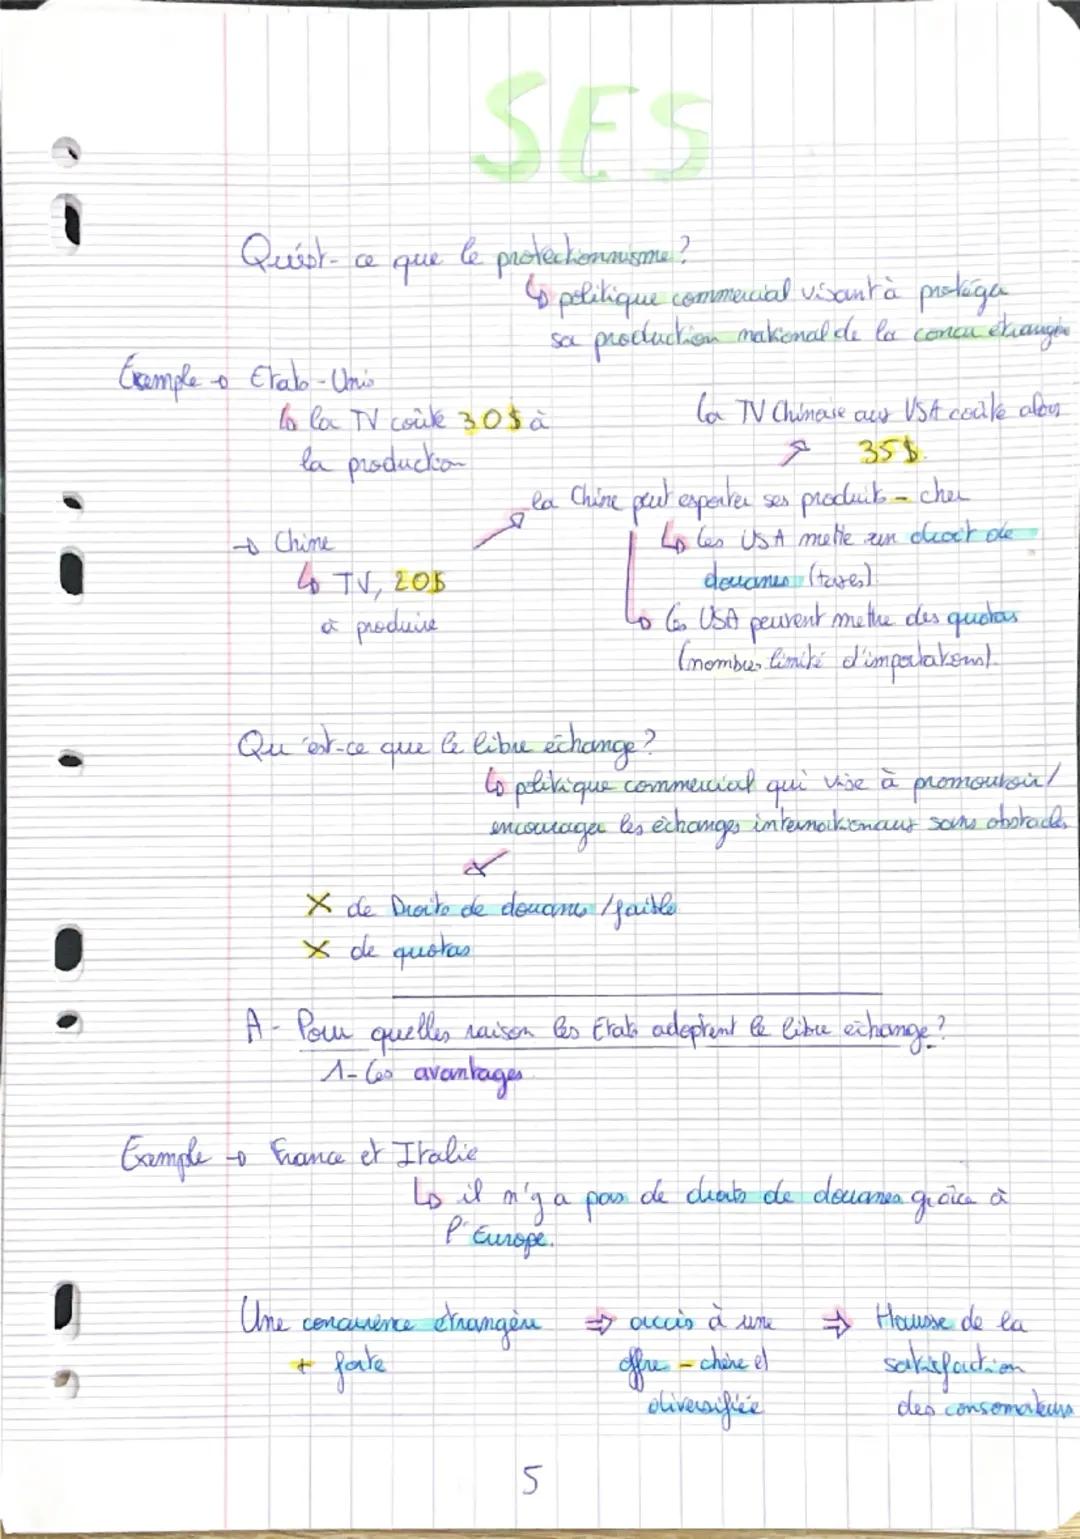 SES
Qu'est-ce que le protectionnisme?
↳ politique commercial visant à protéger
sa production national de la concu étrangère
Exemple → Etats-Unis
↳ la TV coûte 30$ à
la production
la TV Chinoise aux USA coûte alors
35$.
la Chine peut exporter ses produits - cher
→ Chine
↳ Les USA mette un droit de
douanes (taxes)
↳ TV, 20$
à produire
↳ Les USA peuvent mettre des quotas
(nombres limité d'importations).
Qu'est-ce que le libre échange?
↳ politique commercial qui vise à promouvoir/
encourager les échanges internationaux sans obstacles
X de Droits de douanes / faible
X de quotas
A - Pour quelles raison les Etats adoptent le libre échange?
1 - Les avantages
Exemple → France et Italie
↳ il n'y a pas de droits de douanes grâce à
l'Europe.
Une concurrence étrangère ⇒ accès à une ⇒ Hausse de la
+ forte offre - chère et satisfaction
diversifiée des consomateurs
5